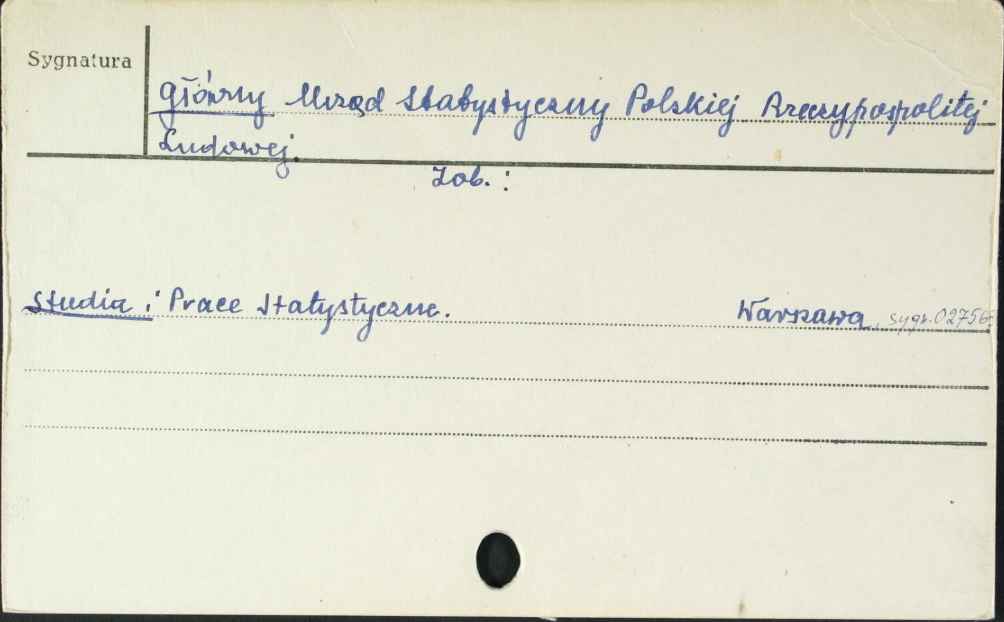 Sygnatura
Główny Urząd Statystyczny Polskiej Rzeczypospolitej
Ludowej.
Zob. :
Studia i Prace Statystyczne. Warszawa, sygn. 02756